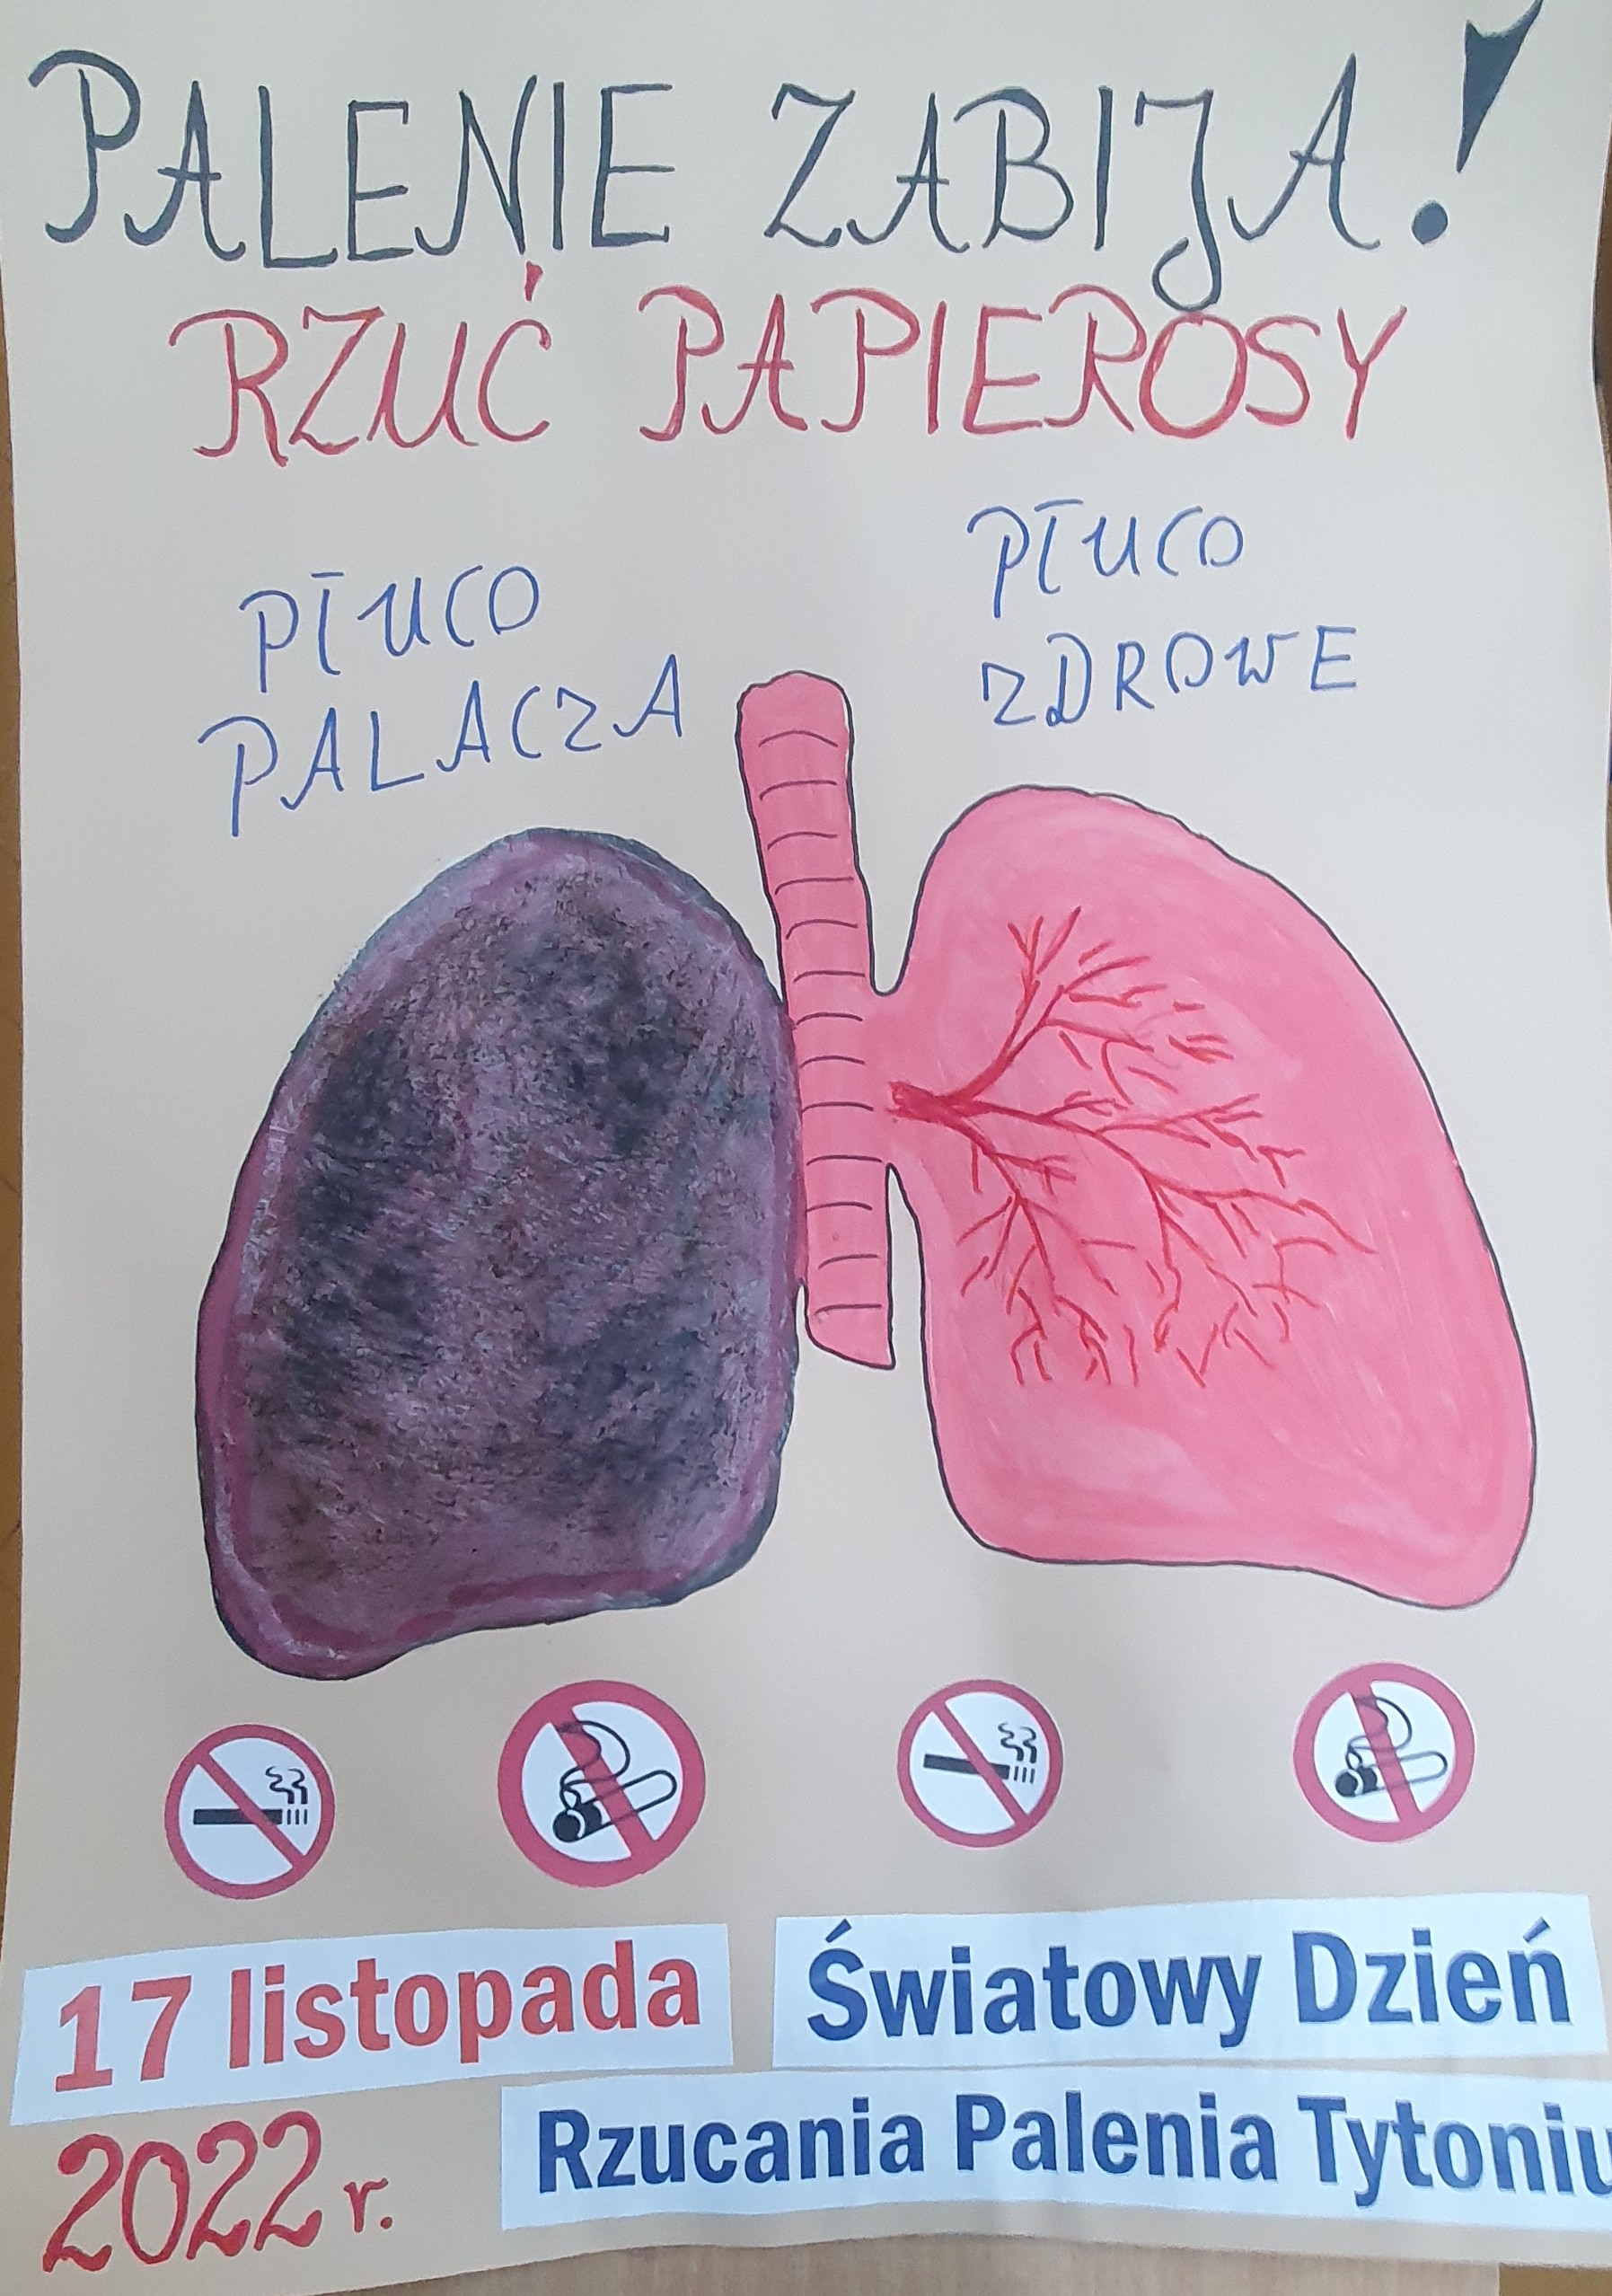 PALENIE ZABIJA!
RZUĆ PAPIEROSY
PŁUCO
PALACZA
PŁUCO
ZDROWE
17 listopada
2022 r.
Światowy Dzień
Rzucania Palenia Tytoniu